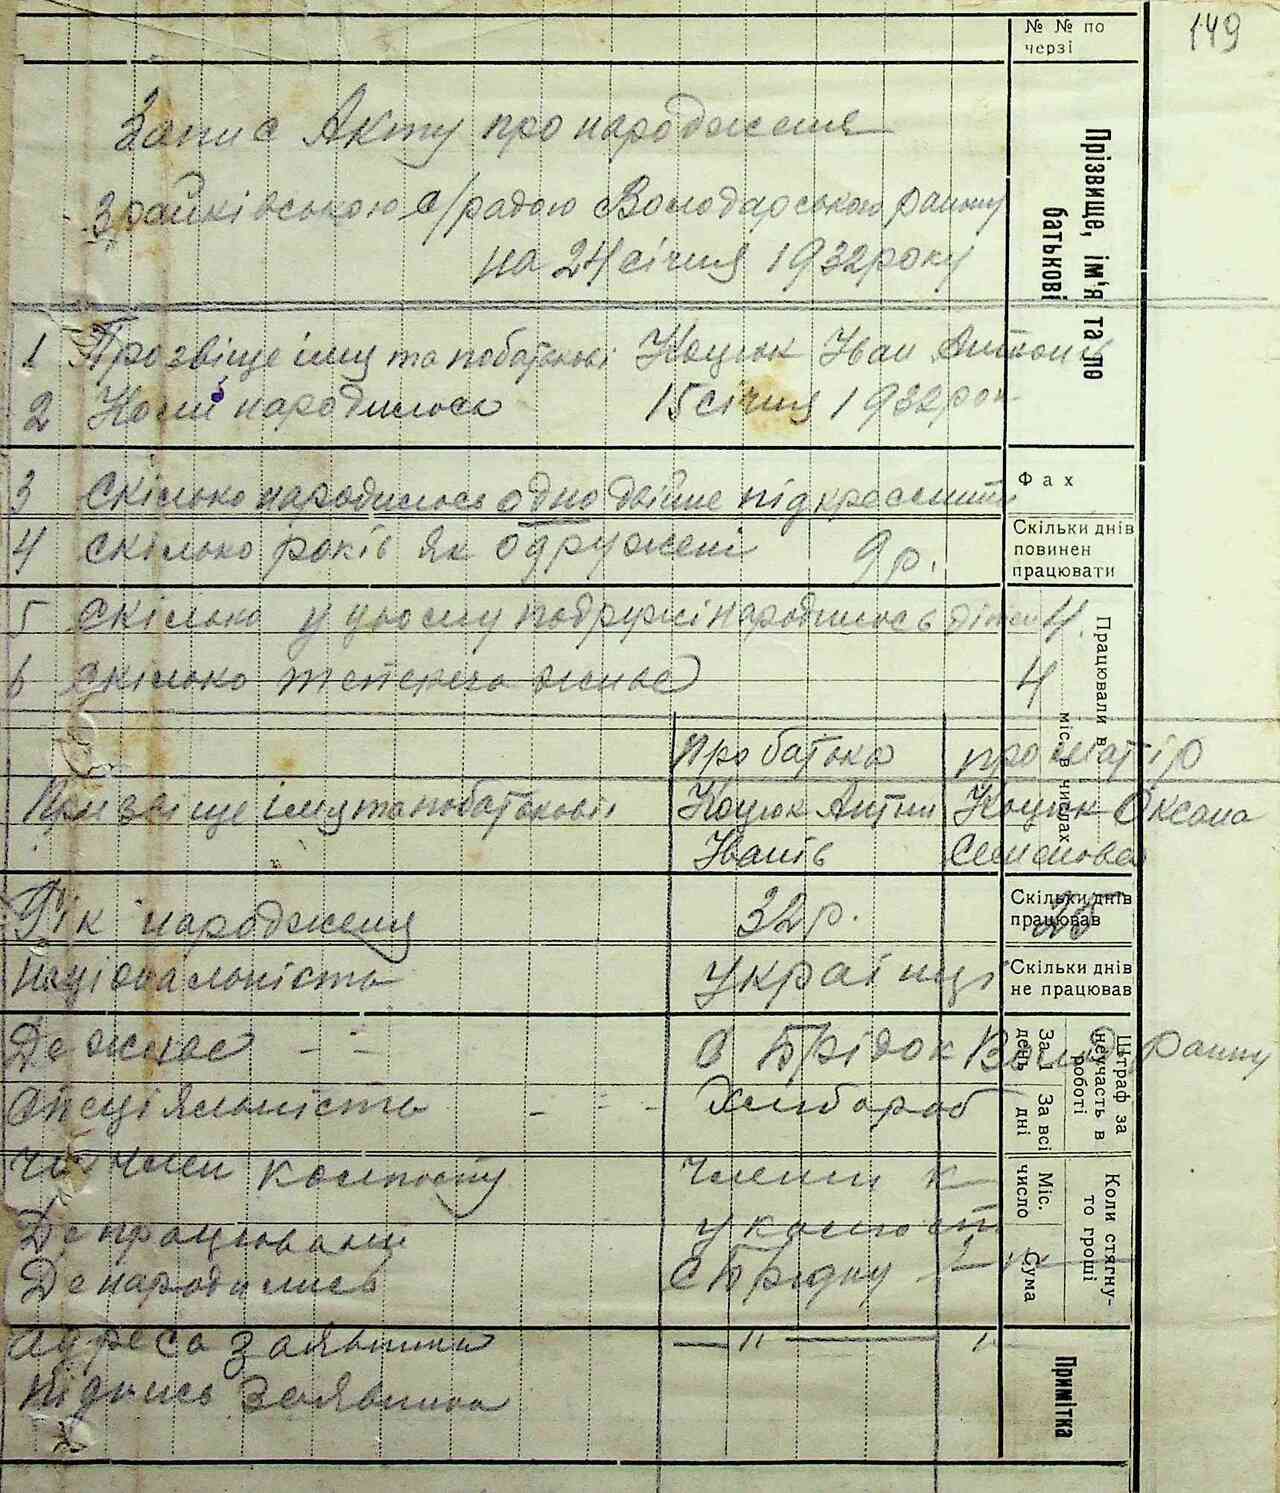 149
№ № по черзі
Прізвище, ім'я та по батькові
Запис Акту про народженя
Зрайківською с/радою Володарського району
на 24 січня 1932 року
1 Прозвіще імя та побатькові Коцюк Іван Антонів
2 Коли народилось 15 січня 1932 рок
Фах
3 Скілько народилось одно двійне підкреслити
Скільки днів повинен працювати
4 Скілько років як одружені 9 р.
5 Скілько у цьому подружі народилось дітей 4.
6 Скілько тепереча живе 4
Працювали в міс. в числах
Про батька про матір
Призвище імя та побатькові Коцюк Антин Коцюк Оксана
Іванів Семенова
Скільки днів працював
Рік народженя 32 р. 26
Скільки днів не працював
Національність українці
Штраф за неучасть в роботі
За 1 день
За всі дні
Де живе с Брідок Волод. району
Спеціяльність Хлибороб
Коли стягнуто гроші
Міс. число
Сума
Чи член колгоспу члени к
Де працювали у колгосп
Де народились с Брідку
Адреса заявника — " — "
Примітка
Підпись Заявника